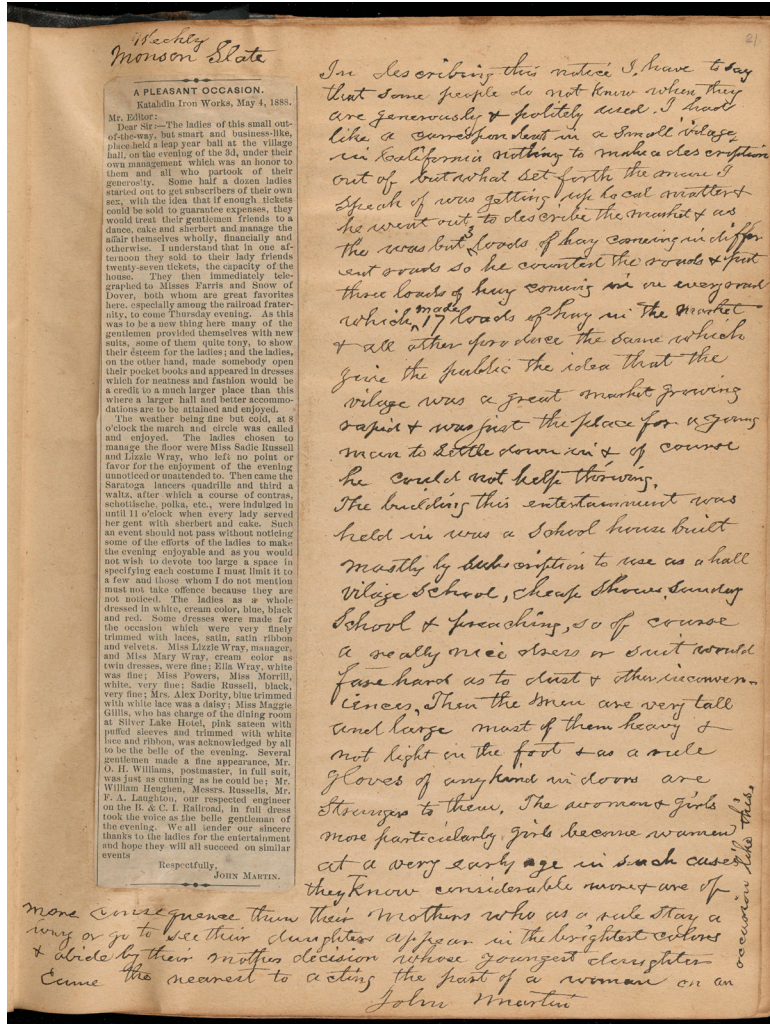 Weekly
Monson Slate
A PLEASANT OCCASION.
Katahdin Iron Works, May 4, 1888.
Mr. Editor:
Dear Sir:—The ladies of this small out-
of-the-way, but smart and business-like,
place held a leap year ball at the village
hall, on the evening of the 3d, under their
own management which was an honor to
them and all who partook of their
generosity. Some half a dozen ladies
started out to get subscribers of their own
sex, with the idea that if enough tickets
could be sold to guarantee expenses, they
would treat their gentlemen friends to a
dance, cake and sherbet and manage the
affair themselves wholly, financially and
otherwise. I understand that in one af-
ternoon they sold to their lady friends
twenty-seven tickets, the capacity of the
house. They then immediately tele-
graphed to Misses Farris and Snow of
Dover, both whom are great favorites
here, especially among the railroad frater-
nity, to come Thursday evening. As this
was to be a new thing here many of the
gentlemen provided themselves with new
suits, some of them quite tony, to show
their esteem for the ladies; and the ladies,
on the other hand, made somebody open
their pocket books and appeared in dresses
which for neatness and fashion would be
a credit to a much larger place than this
where a larger hall and better accommo-
dations are to be attained and enjoyed.
The weather being fine but cold, at 8
o'clock the march and circle was called
and enjoyed. The ladies chosen to
manage the floor were Miss Sadie Russell
and Lizzie Wray, who left no point or
favor for the enjoyment of the evening
unnoticed or unattended to. Then came the
Saratoga lancers quadrille and third a
waltz, after which a course of contras,
schottische, polka, etc., were indulged in
until 11 o'clock when every lady served
her gent with sherbert and cake. Such
an event should not pass without noticing
some of the efforts of the ladies to make
the evening enjoyable and as you would
not wish to devote too large a space in
specifying each costume I must limit it to
a few and those whom I do not mention
must not take offence because they are
not noticed. The ladies as a whole
dressed in white, cream color, blue, black
and red. Some dresses were made for
the occasion which were very finely
trimmed with laces, satin, satin ribbon
and velvets. Miss Lizzie Wray, manager,
and Miss Mary Wray, cream color as
twin dresses, were fine; Ella Wray, white
was fine; Miss Powers, Miss Morrill,
white, very fine; Sadie Russell, black,
very fine; Mrs. Alex Dority, blue trimmed
with white lace was a daisy; Miss Maggie
Gillis, who has charge of the dining room
at Silver Lake Hotel, pink sateen with
puffed sleeves and trimmed with white
lace and ribbon, was acknowledged by all
to be the belle of the evening. Several
gentlemen made a fine appearance, Mr.
O. H. Williams, postmaster, in full suit,
was just as cunning as he could be; Mr.
William Heughen, Messrs. Russells, Mr.
F. A. Laughton, our respected engineer
on the B. & C. I. Railroad, in full dress
took the voice as the belle gentleman of
the evening. We all tender our sincere
thanks to the ladies for the entertainment
and hope they will all succeed on similar
events
Respectfully,
JOHN MARTIN.
21.
In describing this notice I, have to say
that some people do not know when they
are generously & politely used. I had
like a correspondent in a small vilage
in California nothing to make a description
out of but what set forth the more I
speak of was getting up local matter &
he went out to describe the market & as
the was but 3 loads of hay coming in differ
ent roads so he counted the roads & put
three loads of hay coming in on every road
which made 17 loads of hay in the market
& all other produce the same which
give the public the idea that the
village was a great market growing
rapid & was just the place for a young
man to settle down in & of course
he could not help thriving.
The building this entertainment was
held in was a School house built
mostly by subscription to use as a hall
vilage School, cheap Shows, Sunday
School & preaching, so of course
a really nice dress or suit would
fare hard as to dust & other inconven-
iences, Then the men are very tall
and large most of them heavy &
not light on the foot & as a rule
gloves of any kind in doors are
Strangers to them. The women & girls
more particularly girls become women
at a very early age in such cases
they know considerable more & are of
more consequence than their mothers who as a rule stay a
way or go to see their daughters appear in the brightest colors
& abide by their mothers decision whose youngest daughter
came the nearest to acting the part of a woman on an
occasion like this.
John Martin